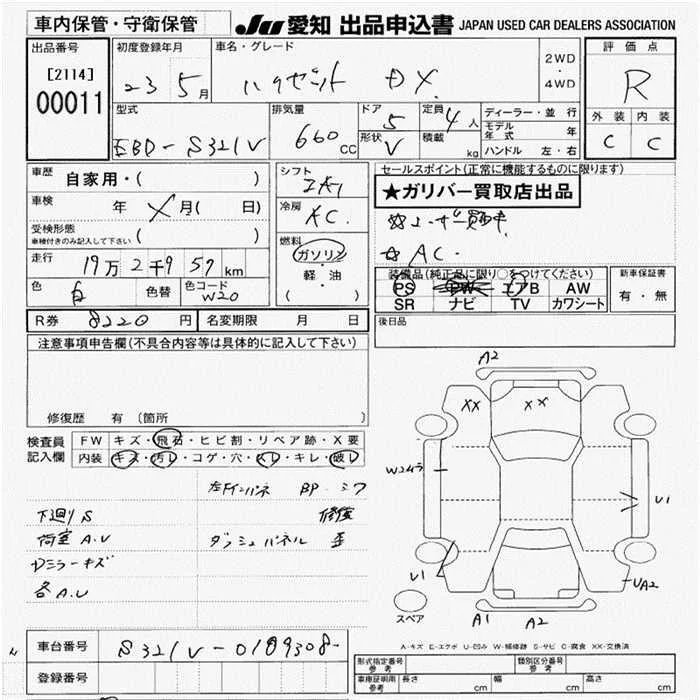 車内保管・守衛保管 JU 愛知 出品申込書 JAPAN USED CAR DEALERS ASSOCIATION
出品番号 初度登録年月 車名・グレード 2WD ・ 4WD 評価点
[2114] 00011 23 5月 ハイゼット DX R
型式 排気量 ドア 形状 定員 積載 ディーラー・並行 外装 内装
EBD-S321V 660 CC 5 V 4人 kg モデル年式 年 C C
ハンドル 左・右
車歴 自家用・( ) シフト セールスポイント(正常に機能するものに限ります)
★ガリバー買取店出品
車検 年 月( 日) 冷房 AC.
受検形態 ( )
車検付きのみ記入して下さい
☆ユーザー買取車
☆ AC.
走行 19万2千957km 燃料 ガソリン ・ 軽・油 ( )
色 白 色替 色コード W20
装備品(純正品に限り○をつけてください) 新車保証書
PS PW エアB AW 有・無
SR ナビ TV カワシート
R券 8220円 名変期限 月 日 後日品
注意事項申告欄(不具合内容等は具体的に記入して下さい)
修復歴 有 (箇所
検査員記入欄 FW キズ・飛石・ヒビ割・リペア跡・X要
内装 キズ・汚レ・コゲ・穴・スレ・キレ・破レ
A2
XX XX
W2
U1
U1
UA2
A1 A2
スペア
下廻りS 修復
荷室A.U ダッシュパネル 歪
Dミラーキズ
各A.U
A-キズ E-エクボ U-凹み W-補修跡 S-サビ C-腐食 XX-交換済
車台番号 S321V-0189308-
登録番号
形式指定番号 参考 類別区分番号 参考
車庫証明用 参考 長さ cm 幅 cm 高さ cm